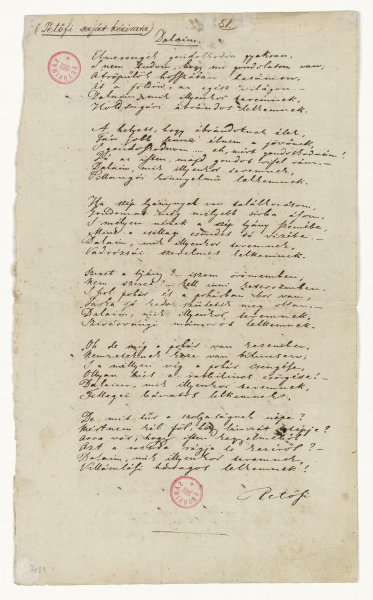 (Petőfi saját kézirata)
51.
Dalaim.
Elmerengek gondolkodva gyakran,
S nem tudom, hogy mi gondolatom van,
Átröpűlök hosszában hazámon,
Át a földön, az egész világon. –
Dalaim, mik illyenkor teremnek,
Holdsugári ábrándos lelkemnek.
A helyett, hogy ábrándoknak élek,
Tán jobb volna élnem a jövőnek,
S gondoskodnom ... eh, mért gondoskodnám?
Jó az isten, majd gondot visel rám. –
Dalaim, mik illyenkor teremnek,
Pillangói könnyelmü lelkemnek.
Ha szép lyánynyal van találkozásom,
Gondomat még mélyebb sírba ásom,
S mélyen nézek a szép lyány szemébe,
Mint a csillag csendes tó vizébe. –
Dalaim, mik illyenkor teremnek,
Vadrózsái szerelmes lelkemnek.
Szeret a lyány? – iszom örömemben,
Nem szeret? – kell inni keservemben.
S hol pohár és a pohárban bor van,
Tarka jó kedv születik meg ottan. –
Dalaim, mik illyenkor teremnek,
Szivárványi mámoros lelkemnek.
Oh de míg a pohár van kezemben,
Nemzeteknek keze van bilincsen,
S a millyen víg a pohár csengése,
Ollyan bús a rabbilincs csörgése. –
Dalaim, mik illyenkor teremnek,
Fellegei bánatos lelkemnek.
De mit tűr a szolgaságnak népe?
Mért nem kél föl, hogy láncát letépje?
Arra vár, hogy isten kegyelméből
Azt a rozsda rágja le kezéről? –
Dalaim, mik illyenkor teremnek,
Villámlási haragos lelkemnek!
Petőfi